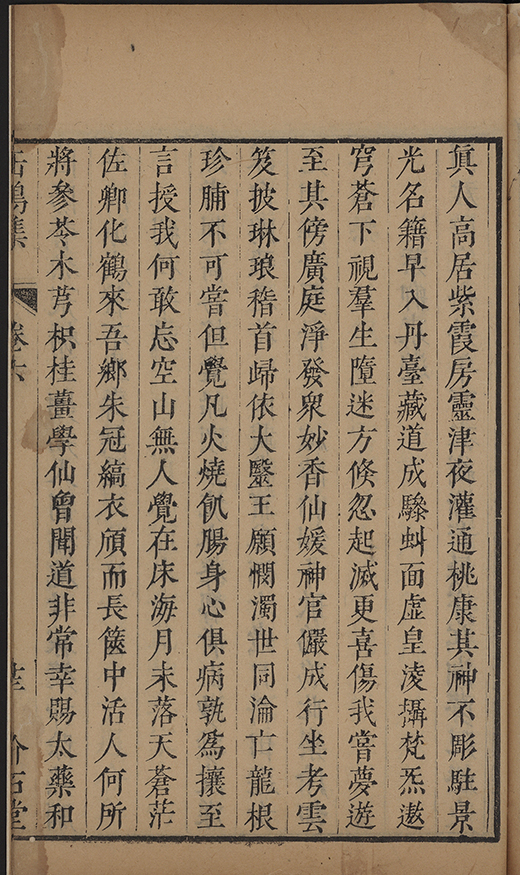 眞人高居紫霞房靈津夜灌通桃康其神不彫駐景
光名籍早入丹臺藏道成驂虯面虛皇淩攝梵炁遨
穹蒼下視羣生墮迷方倐忽起滅更喜傷我嘗夢遊
至其傍廣庭淨發衆妙香仙媛神官儼成行坐考雲
笈披琳琅稽首歸依大毉王願憫濁世同淪亡龍根
珍脯不可嘗但覺凡火燒飢腸身心俱病孰爲攘至
言授我何敢忘空山無人覺在床海月未落天蒼茫
佐卿化鶴來吾鄉朱冠縞衣頎而長篋中活人何所
將參苓木芎枳桂薑學仙曾聞道非常幸賜太藥和
卷六